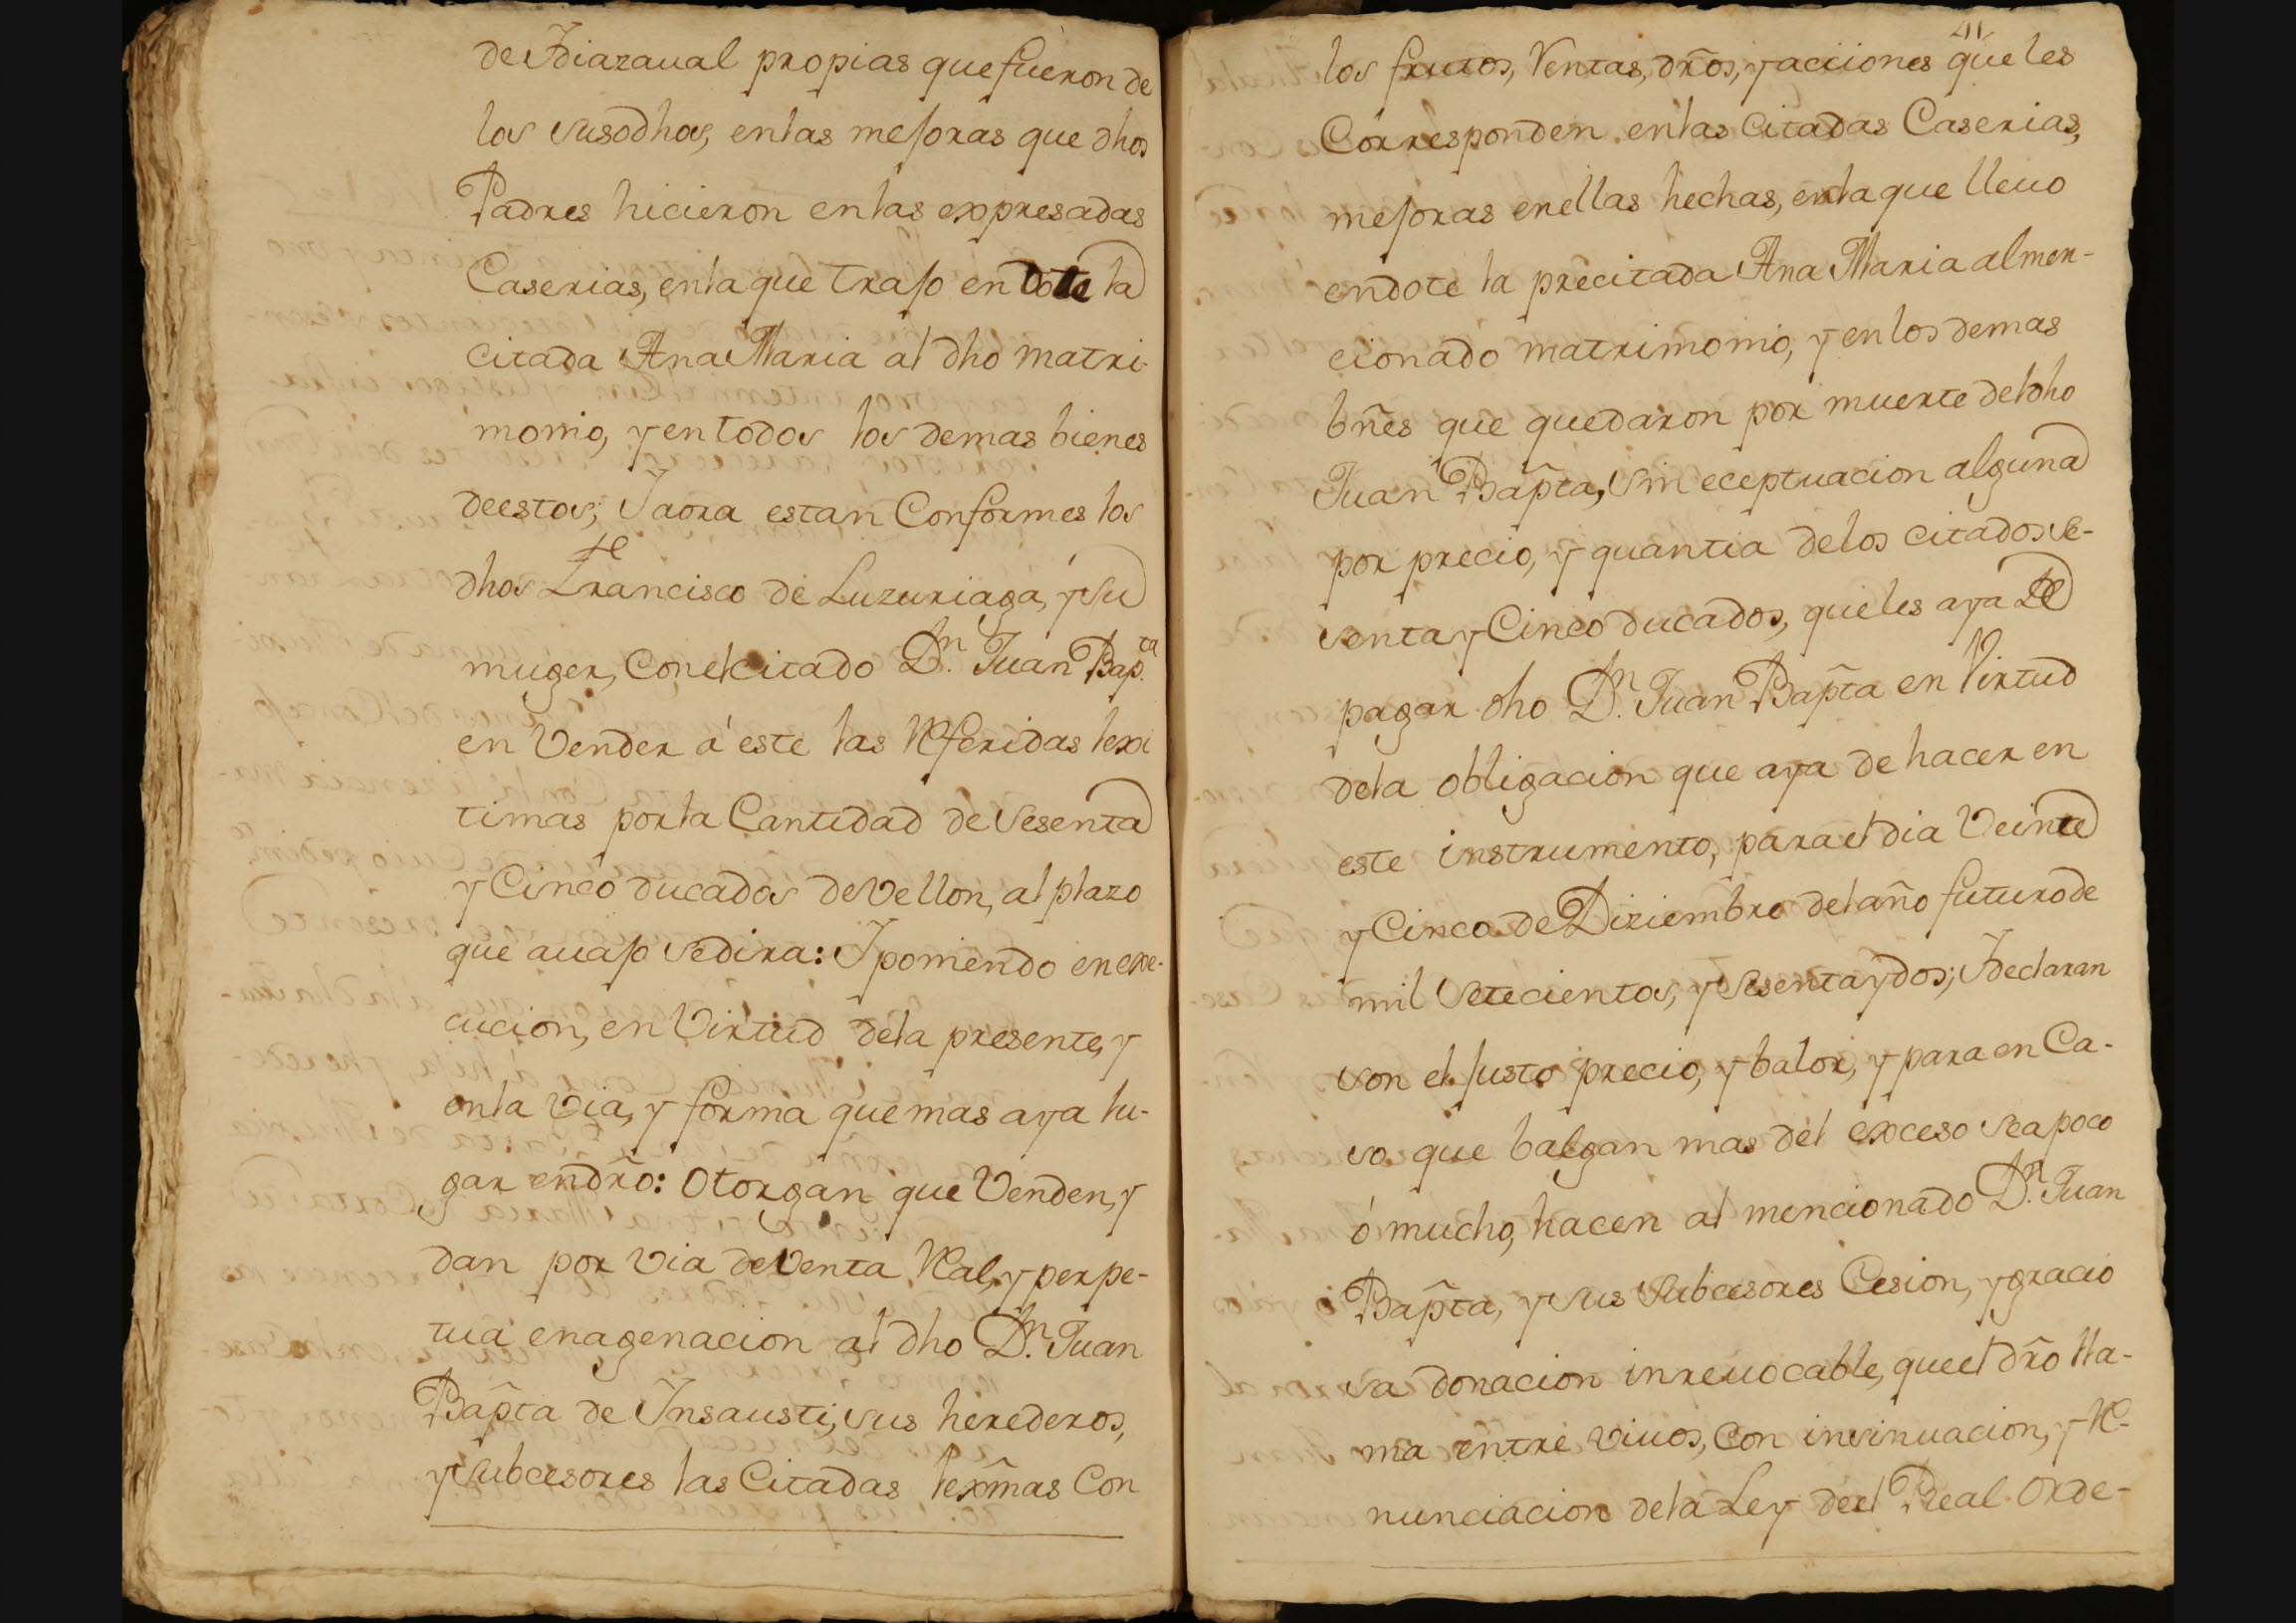 de Ydiazaual propias que fueron de
los susodhos, en las mejoras que dhos
Padres hicieron en las expresadas
Caserias, en la que trajo en Dote la
citada Ana Maria al dho matri-
monio, y en todos los demas bienes
de estos; Y aora estan Conformes los
dhos Francisco de Luzuriaga, y su
muger, con el citado Dn. Juan Bapta.
en Vender á este las Referidas lexi
timas por la Cantidad de Sesenta
y Cinco ducados de Vellon, al plazo
que auajo se dira: Y poniendo en exe-
cucion, en Virtud de la presente, y
en la Via, y forma que mas aya lu-
gar en dr̃o: Otorgan que Venden, y
dan por Via de Venta Real, y perpe-
tua enagenacion al dho Dn. Juan
Bap̃ta de Ynsausti, sus herederos,
y subcesores las Citadas lexm̃as Con
41
los frutos, Rentas, dr̃os, y acciones que les
Corresponden en las Citadas Caserias,
mejoras en ellas hechas, en la que lleuo
en dote la precitada Ana Maria al men-
cionado matrimonio, y en los demas
bñes que quedaron por muerte del dho
Juan Bap̃ta, sin eceptuacion alguna
por precio, y quantia de los citados se-
senta y Cinco ducados, que les aya de
pagar dho Dn. Juan Bap̃ta en Virtud
de la obligacion que aya de hacer en
este instrumento, para el dia Veinte
y Cinco de Diziembre del año futuro de
mil Setecientos, y sesenta y dos; Y declaran
son el justo precio, y balor, y para en Ca-
so que balgan mas del exceso sea poco
ó mucho, hacen al mencionado Dn. Juan
Bap̃ta, y sus Subcesores Cesion, y gracio
sa donacion inrreuocable, que el dr̃o lla-
ma entre viuos, con insinuacion, y Re-
nunciacion de la Ley de el Real Orde-